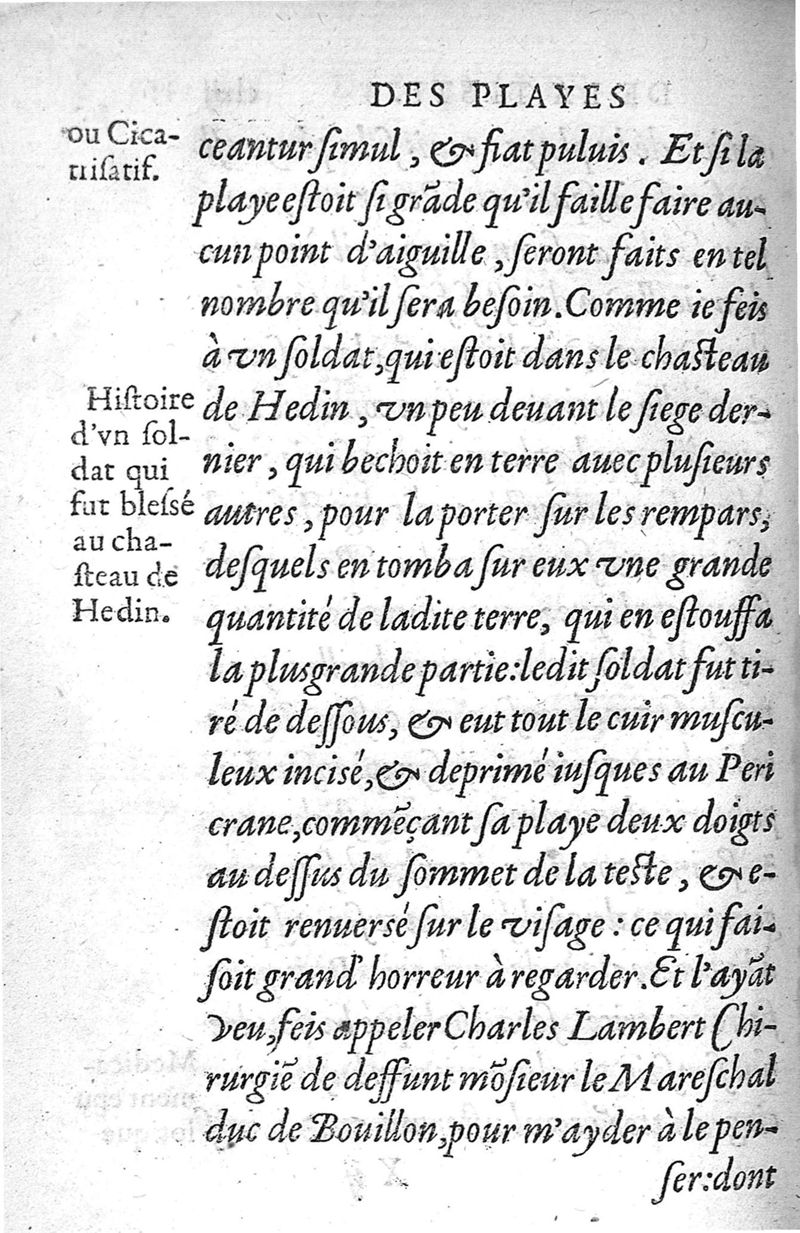 DES PLAYES
ou Cica-
trisatif.
ceantur ſimul, & fiat puluis. Et ſi la
playe eſtoit ſi grãde qu'il faille faire au-
cun point d'aiguille, ſeront faits en tel
nombre qu'il ſera beſoin. Comme ie feis
à vn ſoldat, qui eſtoit dans le chaſteau
Hiſtoire
d'vn ſol-
dat qui
fut bleſſé
au cha-
ſteau de
Hedin.
de Hedin, vn peu deuant le ſiege der-
nier, qui bechoit en terre auec pluſieurs
autres, pour la porter ſur les rempars,
deſquels en tomba ſur eux vne grande
quantité de ladite terre, qui en eſtouffa
la plus grande partie: ledit ſoldat fut ti-
ré de deſſous, & eut tout le cuir muſcu-
leux inciſé, & deprimé iuſques au Peri
crane, commẽçant ſa playe deux doigts
au deſſus du ſommet de la teſte, & e-
ſtoit renuersé ſur le viſage: ce qui fai-
ſoit grand' horreur à regarder. Et l'ayãt
veu, feis appeler Charles Lambert Chi-
rurgiẽ de deffunt mõſieur le Mareſchal
duc de Bouillon, pour m'ayder à le pen-
ſer: dont